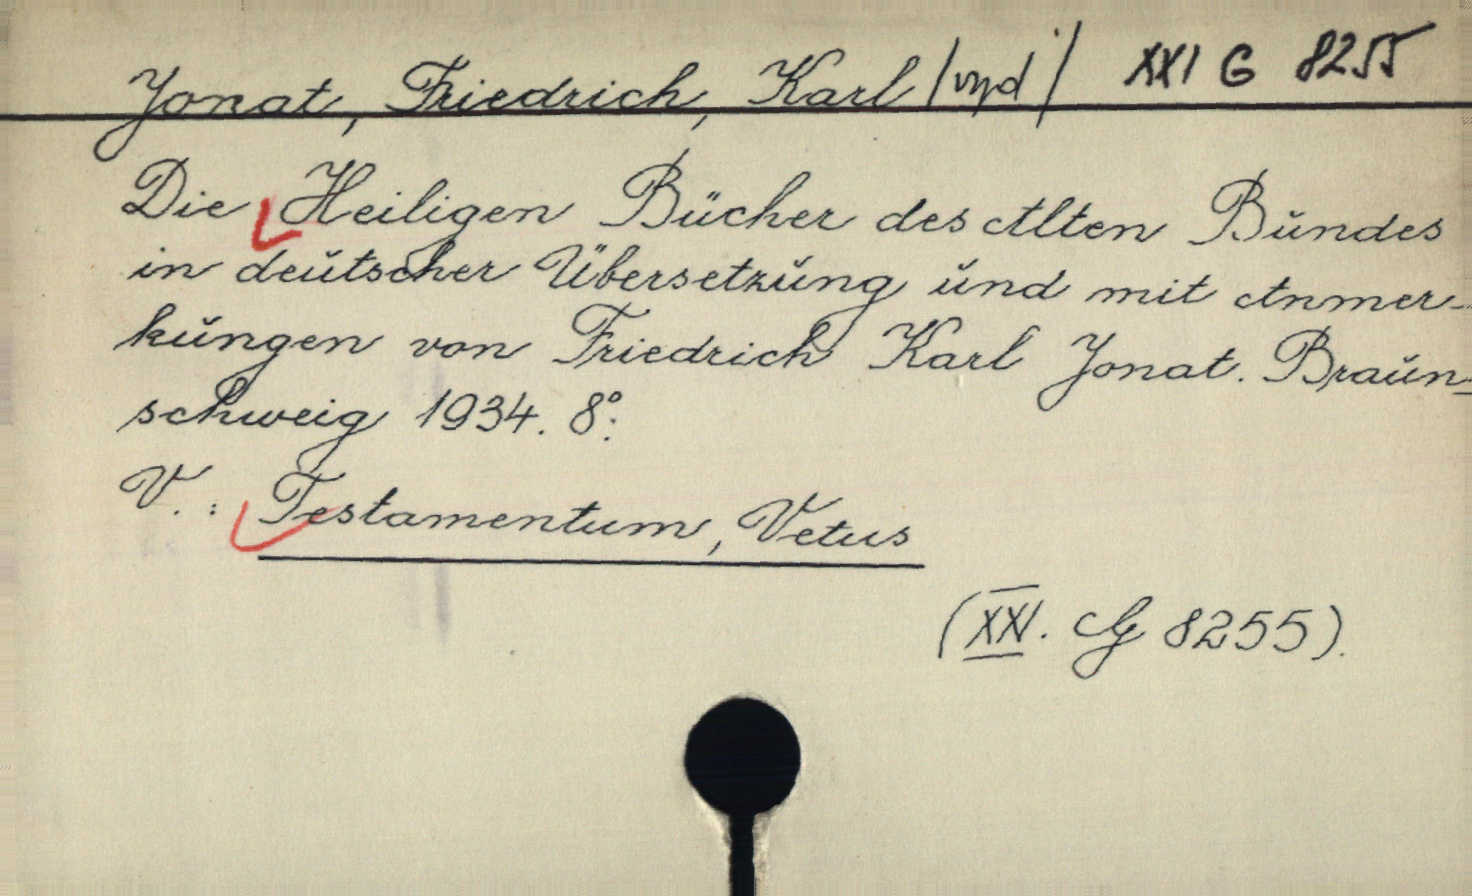 Jonat, Friedrich, Karl /vyd/ XXI G 8255
Die Heiligen Bücher des Alten Bŭndes
in deŭtscher Übersetzŭng ŭnd mit Anmer-
kŭngen von Friedrich Karl Jonat. Braŭn-
schweig 1934. 8°.
V.: Testamentum, Vetus
(XXI. G 8255).